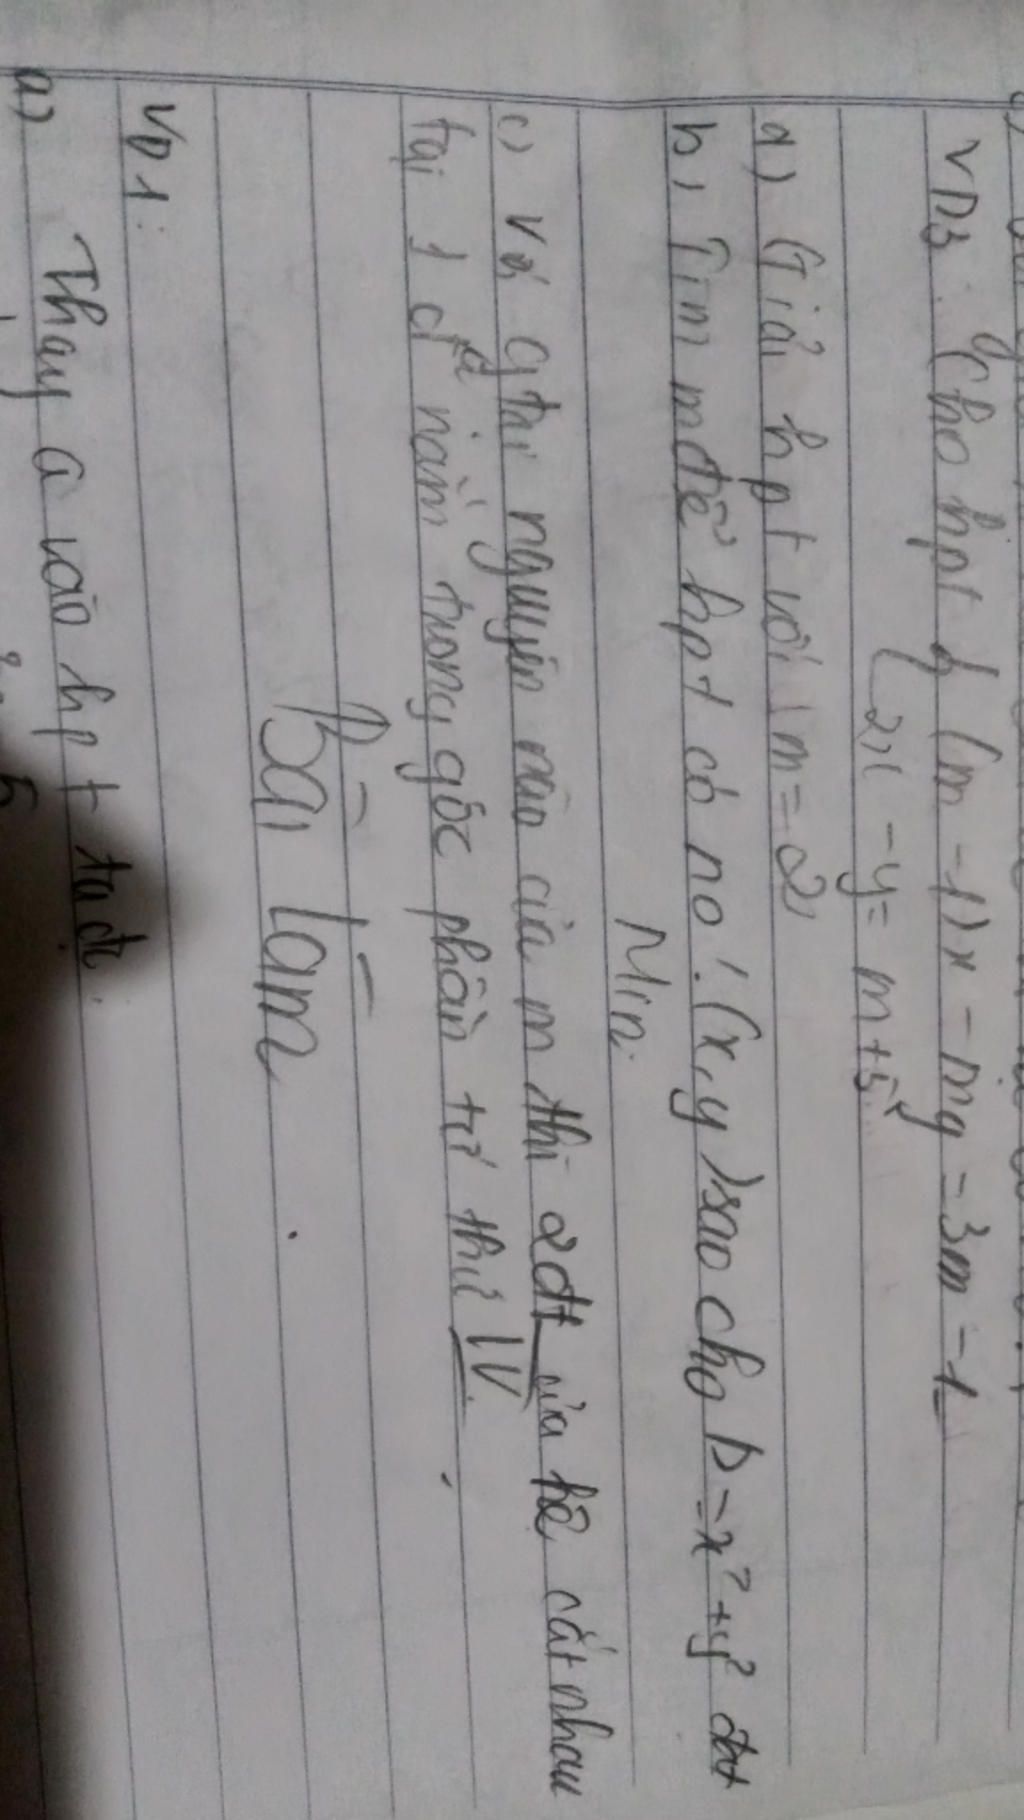 VD3: Cho hpt { (m - 1)x - my = 3m - 1
2x - y = m + 5
a) Giải hpt với m = 2
b, Tìm m để hpt có no! (x, y) sao cho P = x² + y² đạt
Min.
c) Với gtrị nguyên nào của m thì 2đt của hệ cắt nhau
tại 1 đ' nằm trong góc phần tư thứ IV.
Bài làm
VD1:
a) Thay a vào hpt ta đc